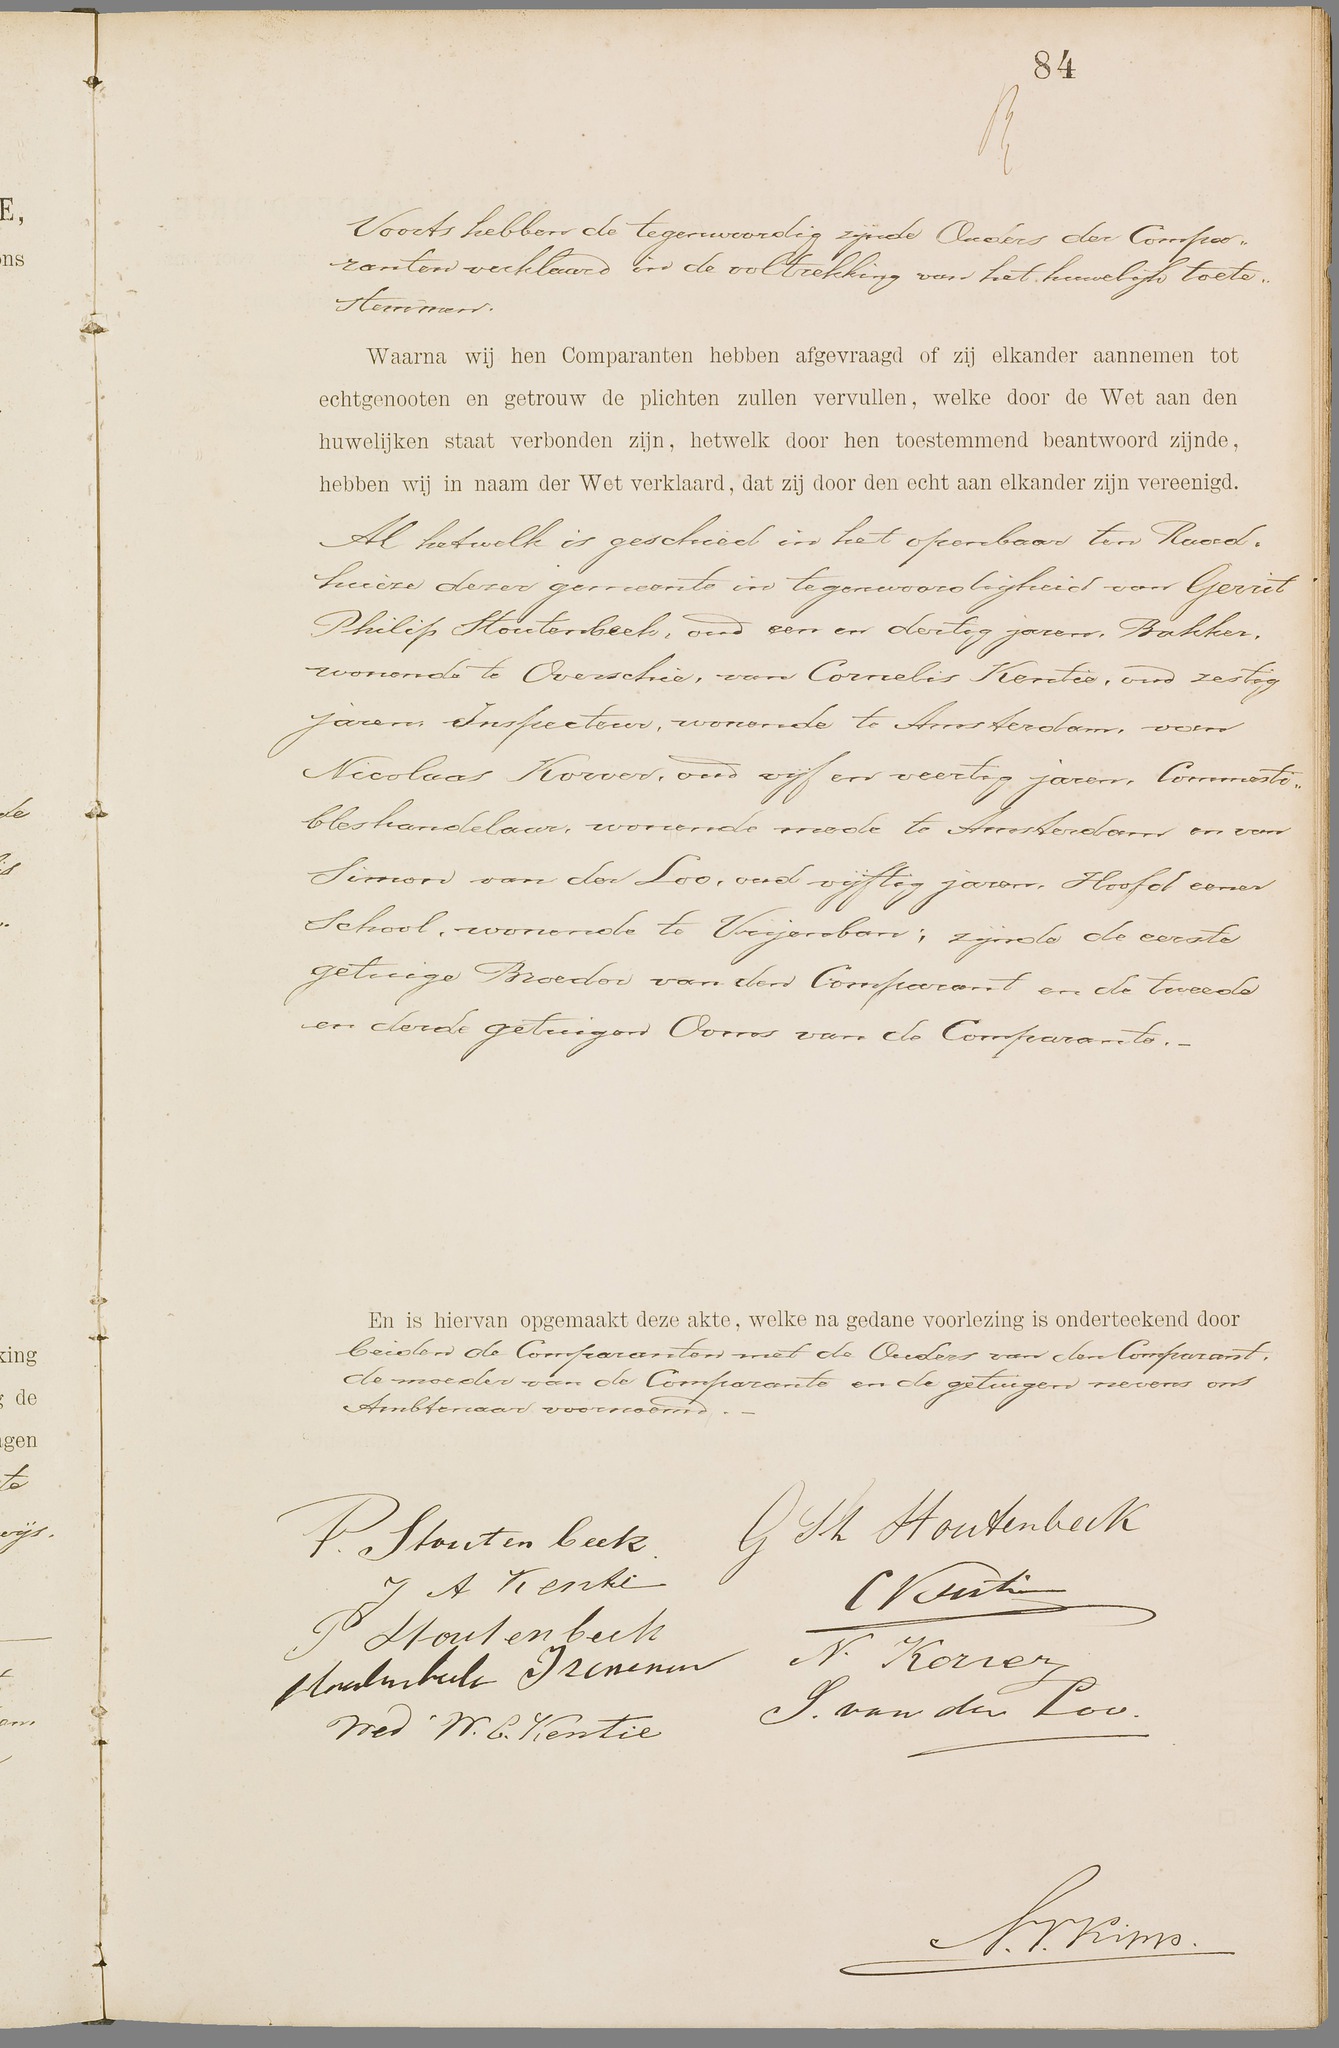 84
E,
ons
Voorts hebben de tegenwoordig zijnde Ouders der Compa„
ranten verklaard in de voltrekking van het huwelijk toete„
stemmen.
Waarna wij hen Comparanten hebben afgevraagd of zij elkander aannemen tot
echtgenooten en getrouw de plichten zullen vervullen, welke door de Wet aan den
huwelijken staat verbonden zijn, hetwelk door hen toestemmend beantwoord zijnde,
hebben wij in naam der Wet verklaard, dat zij door den echt aan elkander zijn vereenigd.
Al hetwelk is geschied in het openbaar ten Raad„
huize dezer gemeente in tegenwoordigheid van Gerrit
Philip Stoutenbeek, oud een en dertig jaren, Bakker,
wonende te Overschie, van Cornelis Kentie, oud zestig
jaren, Inspecteur, wonende te Amsterdam, van
Nicolaas Korver, oud vijf en veertig jaren, Commesti„
bleshandelaar, wonende mede te Amsterdam en van
Simon van der Loo, oud vijftig jaren, Hoofd eener
School, wonende te Vrijenban; zijnde de eerste
getuige Broeder van den Comparant en de tweede
en derde getuigen Ooms van de Comparante.-
En is hiervan opgemaakt deze akte, welke na gedane voorlezing is onderteekend door
beiden de Comparanten met de Ouders van den Comparant,
de moeder van de Comparante en de getuigen nevens ons
Ambtenaar voornoemd.-
king
g de
ngen
P. Stoutenbeek
J A Kentie
P Stoutenbeek
Stoutenbeek
Wed W. C. Kentie
G Ph Stoutenbeek
C Kentie
N. Korver
S. van der Loo.